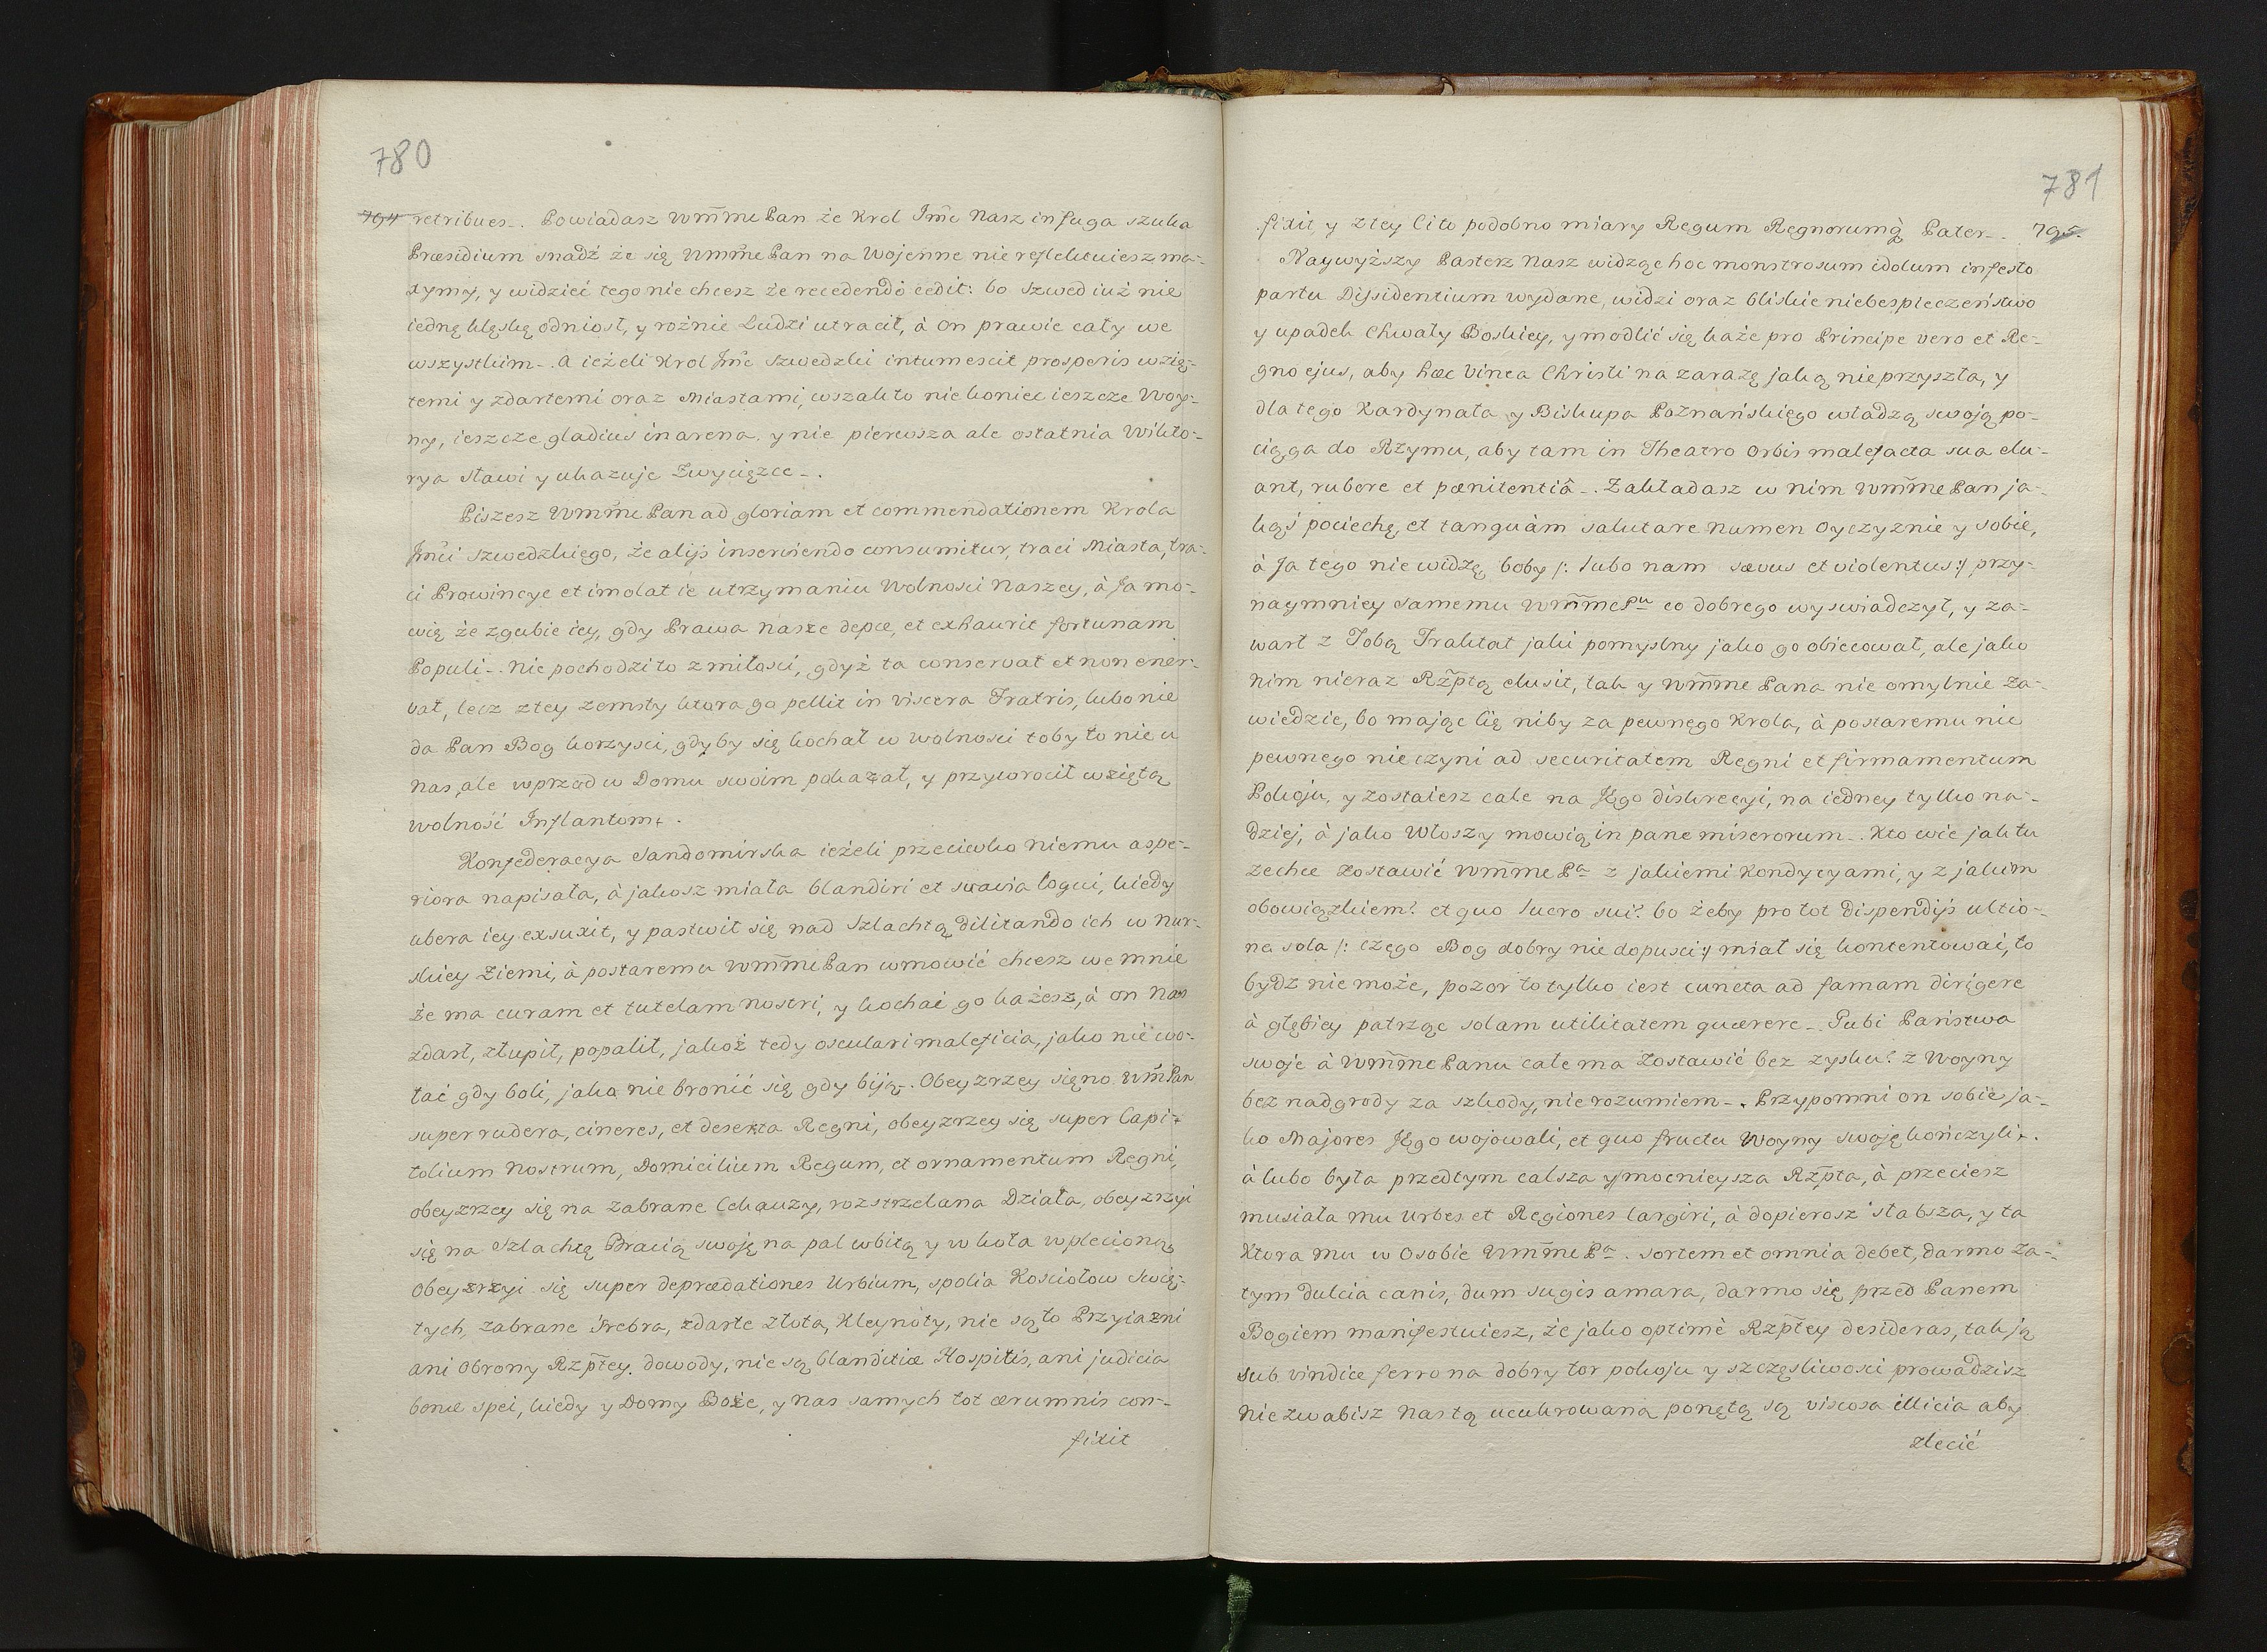 780
794 retribues_. Powiadasz Wm̃me Pan że Krol Jm̃c Nasz in fuga szuka
Præsidium snadź że się Wm̃me Pan na Wojenne nie reflektuiesz ma-
xymy, y widzieć tego nie chcesz że recedendo cedit: bo Szwed iuż nie
iednę klęskę odniosł, y rożnie Ludzi utracił, à on prawie cały we
wszystkim_. A ieżeli Krol Jm̃c Szwedzki intumescit prosperis wzię-
temi y zdartemi oraz Miastami, wszak to nie koniec ieszcze Woy-
ny, ieszcze gladius in arena, y nie pierwsza ale ostatnia Wikto-
rya stawi y ukazuje Zwycięzce_.
Piszesz Wm̃me Pan ad gloriam et commendationem Krola
Jm̃ci Szwedzkiego, że alijs inserviendo consumitur, traci Miasta, tra-
ci Prowincye et imolat ie utrzymaniu Wolnosci Naszey, à Ja mo-
wię że zgubie iey, gdy Prawa nasze depce, et exhaurit fortunam
Populi_. Nie pochodzi to z miłosci, gdyż ta conservat et non ener-
vat, lecz z tey zemsty ktora go pellit in viscera Fratris, lubo nie
da Pan Bog korzysci, gdyby się kochał w wolnosci toby to nie u
nas, ale wprzod w Domu swoim pokazał, y przywrocił wziętą
wolność Inflantom.
Konfederacya Sandomirska ieżeli przeciwko niemu aspe-
riora napisała, à jakosz miała blandiri et suavia loqui, kiedy
ubera iey exsuxit, y pastwił się nad Szlachtą dilitando ich w Nur-
skiey Ziemi, à postaremu Wm̃me Pan wmowić chcesz we mnie
że ma curam et tutelam nostri, y kochać go każesz, à on nas
zdarł, złupił, popalił, jakoż tedy osculari maleficia, jako nie wo-
łać gdy boli, jako nie bronić się gdy biją. Obeyzrzey sięno Wm̃ Pan
super rudera, cineres, et deserta Regni, obeyzrzey się super Capi-
tolium Nostrum, Domicilium Regum, et ornamentum Regni,
obeyzrzey się na zabrane Cekauzy, rozstrzelana Działa, obeyzrzyi
się na Szlachtę Bracią swoję na pal wbitą y w koła wplecioną
Obeyzrzyi się super deprædationes Urbium, spolia Kosciołow Swię-
tych, zabrane srebra, zdarte złota, Kleynoty, nie są to Przyiazni
ani Obrony Rzp̃tey dowody, nie są blanditiæ Hospitis, ani judicia
bonæ spei, kiedy y Domy Boże, y nas samych tot ærumnis con-
fixit
781
fixit y z tey lito podobno miary Regum Regnorumq̃ Pater_. 795.
Naywyższy Pasterz Nasz widząc hoc monstrosum idolum infesto
partu Dissidentium wydane, widzi oraz bliskie niebespieczeństwo
y upadek Chwały Boskiey, y modlić się każe pro Principe vero et Re-
gno ejus, aby hæc Vinea Christi na zarazę jaką nie przyszła, y
dla tego Kardynała y Biskupa Poznańskiego władzą swoją po-
ciąga do Rzymu, aby tam in Theatro Orbis malefacta sua elu-
ant, rubore et pœnitentiâ_. Zakładasz w nim Wm̃me Pan ja-
kąś pociechę, et tanquàm salutare Numen Oyczyznie y sobie,
à Ja tego nie widzę, boby /: lubo nam sævus et violentus :/ przy-
naymniey samemu Wm̃me Pu co dobrego wyswiadczył, y za-
warł z Tobą Traktat jaki pomyslny jako go obiecował, ale jako
nim nieraz Rzp̃tą elusit, tak y Wm̃me Pana nie omylnie za-
wiedzie, bo mając Cię niby za pewnego Krola, à postaremu nic
pewnego nie czyni ad securitatem Regni et firmamentum
Pokoju, y zostaiesz cale na Jego diskrecyi, na iedney tylko na-
dziej, à jako Włoszy mowią in pane miserorum_. Kto wie jak tu
zechce zostawić Wm̃me Pa z jakiemi Kondycyami, y z jakim
obowiązkiem? et quo lucro sui? bo żeby pro tot dispendijs ultio-
ne sola /: czego Bog dobry nie dopusci :/ miał się kontentować, to
bydz nie może, pozor to tylko iest cuncta ad famam dirigere
à głębiey patrząc solam utilitatem quærere_. Gubi Państwa
swoje à Wm̃me Panu cale ma zostawić bez zysku? z Woyny
bez nadgrody za szkody, nie rozumiem_. Przypomni on sobie ja-
ko Majores Jego wojowali, et quo fructu Woyny swoję kończyli.
à lubo była przedtym calsza y mocnieysza Rzp̃ta, à przeciesz
musiała mu Urbes et Regiones largiri, à dopierosz słabsza, y ta
Ktora mu w Osobie Wm̃me Pa. sortem et omnia debet, darmo za-
tym dulcia canis, dum sugis amara, darmo się przed Panem
Bogiem manifestuiesz, że jako optimè Rzp̃tey desideras, tak ją
sub vindice ferro na dobry tor pokoju y szczęsliwosci prowadzisz
nie zwabisz nas tą ucukrowaną ponętą są viscosa illicia aby
zlecić